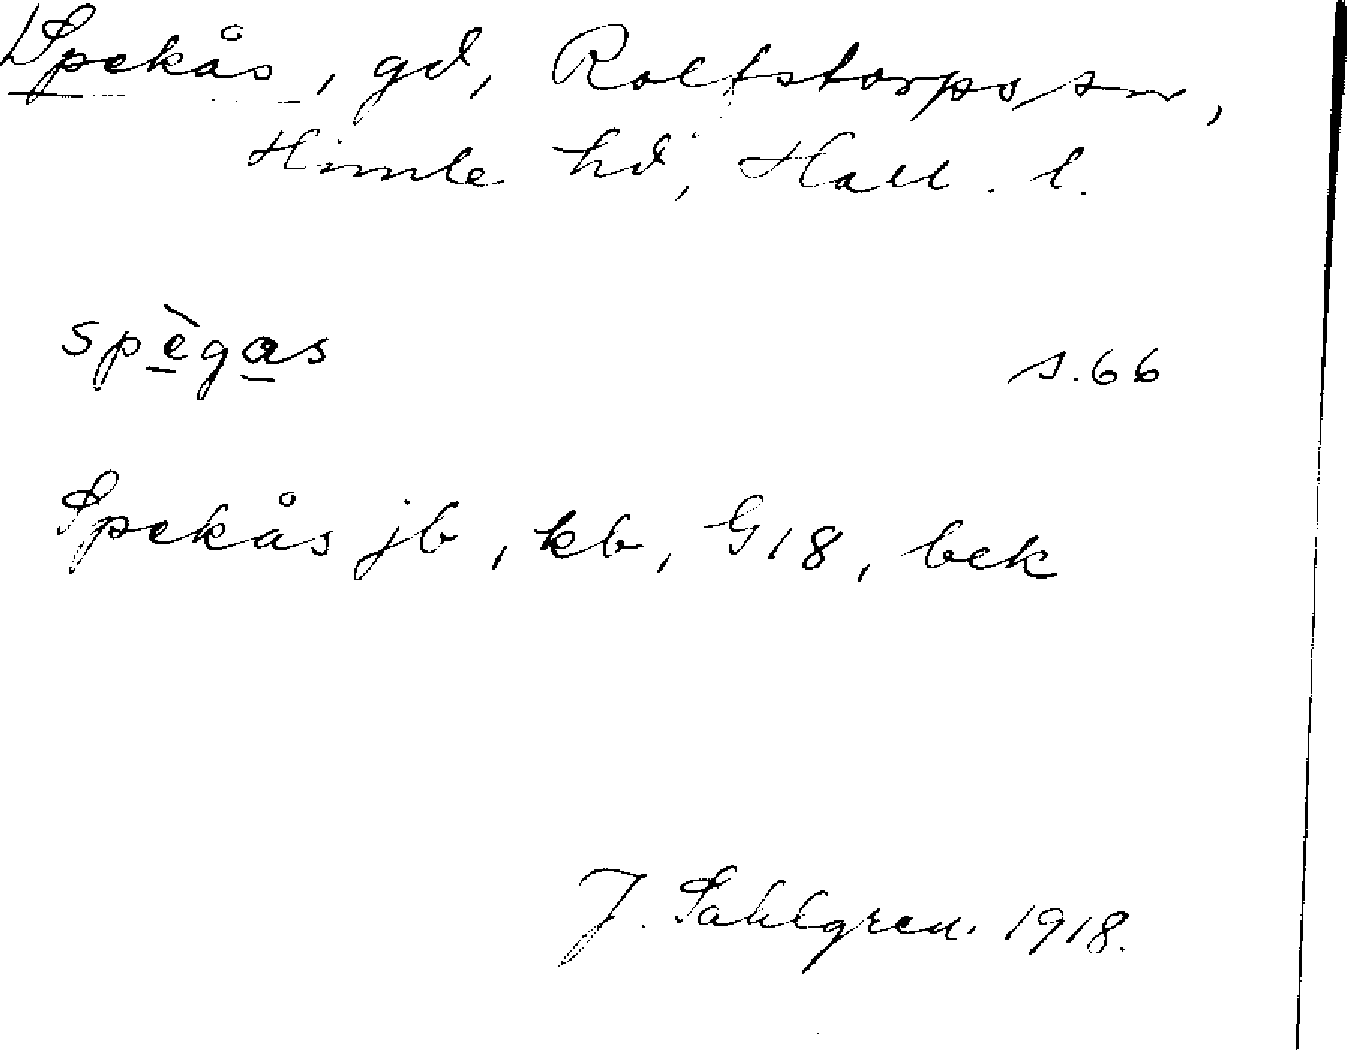 Spekås, gd, Rolfstorps sn,
Himle hd, Hall. l.
spègas s. 66
Spekås jb, kb, G18, bek
J. Sahlgren. 1918.